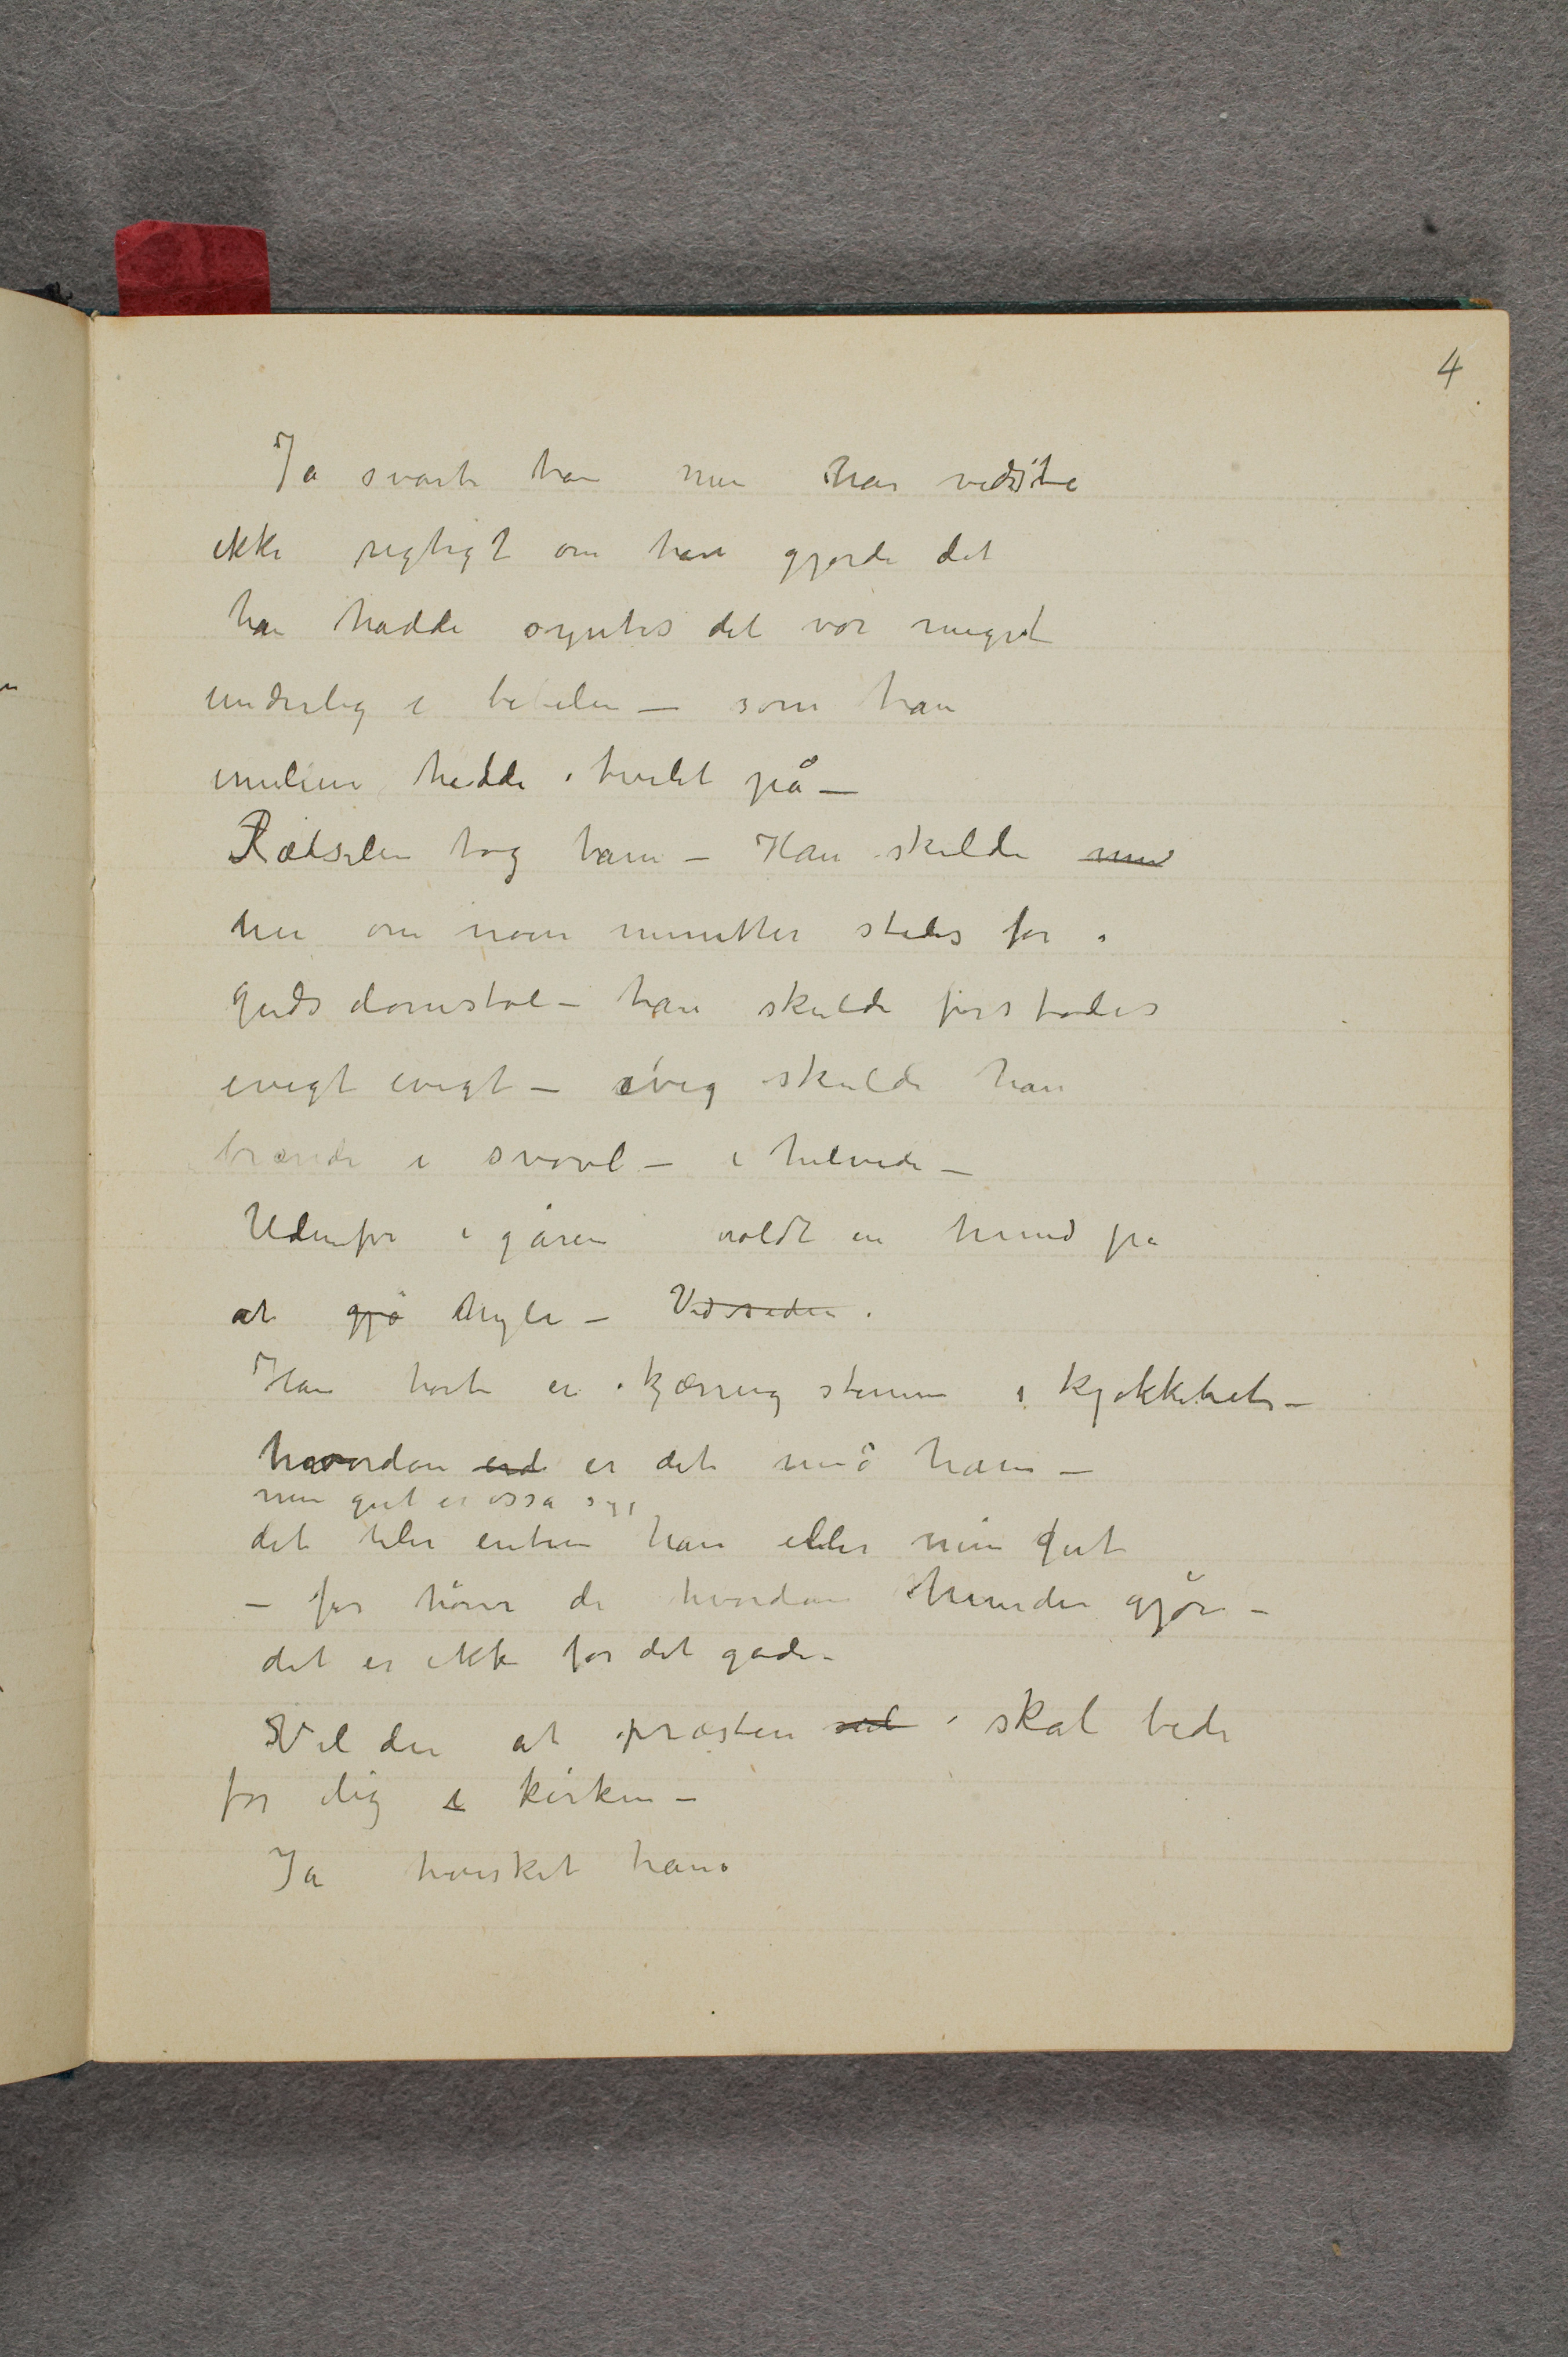 4
Ja svarte han men han vidste
ikke rigtigt om han gjorde det
han hadde syntes det var meget
underlig i bibelen – som han
imellem hadde tvilet på –
Rædselen tog ham – Han skulde med
nu om noen minutter stedes for
guds domstol – han skulde forstødes
evigt evigt – evig skulde han
brænde i svovl – i helvede –
Udenfor i gåren voldt en hund på
at gjø hyle – Ved siden
Han hørte en kjærring stemme i kjøkkenet –
hvordan erd er det med ham –
min gut er osså syg
det teler enten han eller min gut
– for hører de hvordan hunden gjør –
det er ikke for det gode –
Vil du at præsten sal skal bede
for dig i kirken –
Ja hvisket han